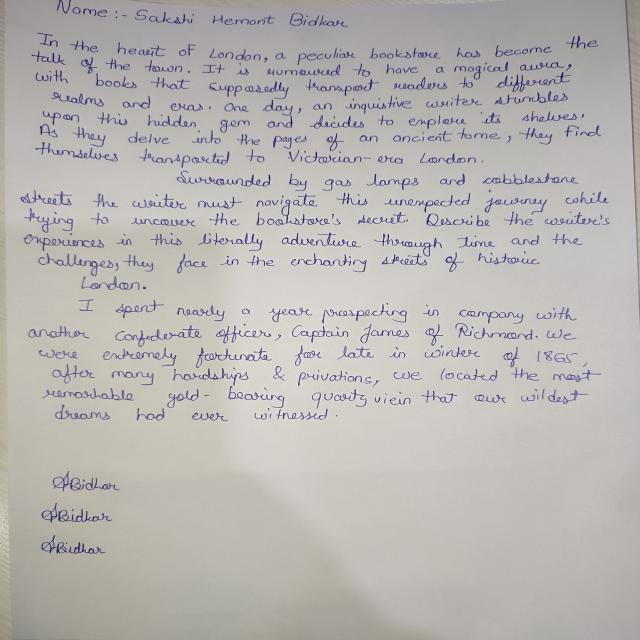 Name :- Sakshi Hemant Bidkar
In the heart of London, a peculiar bookstore has become the
talk of the town. It is rumoured to have a magical aura,
with books that supposedly transport readers to different
realms and eras. One day, an inquistive writer stumbles
upon this hidden gem and decides to explore its shelves.
As they delve into the pages of an ancient tome, they find
themselves transported to Victorian-era London.
Surrounded by gas lamps and cobblestone
streets the writer must navigate this unexpected journey while
trying to uncover the bookstore's secret. Describe the writer's
experiences in this literally adventure through time and the
challenges, they face in the enchanting streets of historic
London.
I spent nearly a year prospecting in company with
another Confederate officer, Captain James of Richmond. We
were extremely fortunate for late in winter of 1865,
after many hardships & privations, we located the most
remarkable gold-bearing quartz viein that our wildest
dreams had ever witnessed.
SBidkar
SBidkar
SBidkar